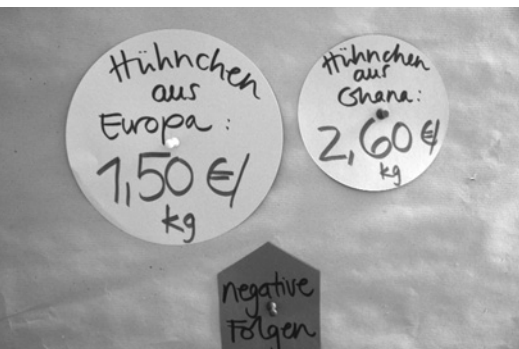 Hühnchen
aus
Europa :
1,50 €/
kg
Hühnchen
aus
Ghana :
2,60 €/
kg
negative
Folgen